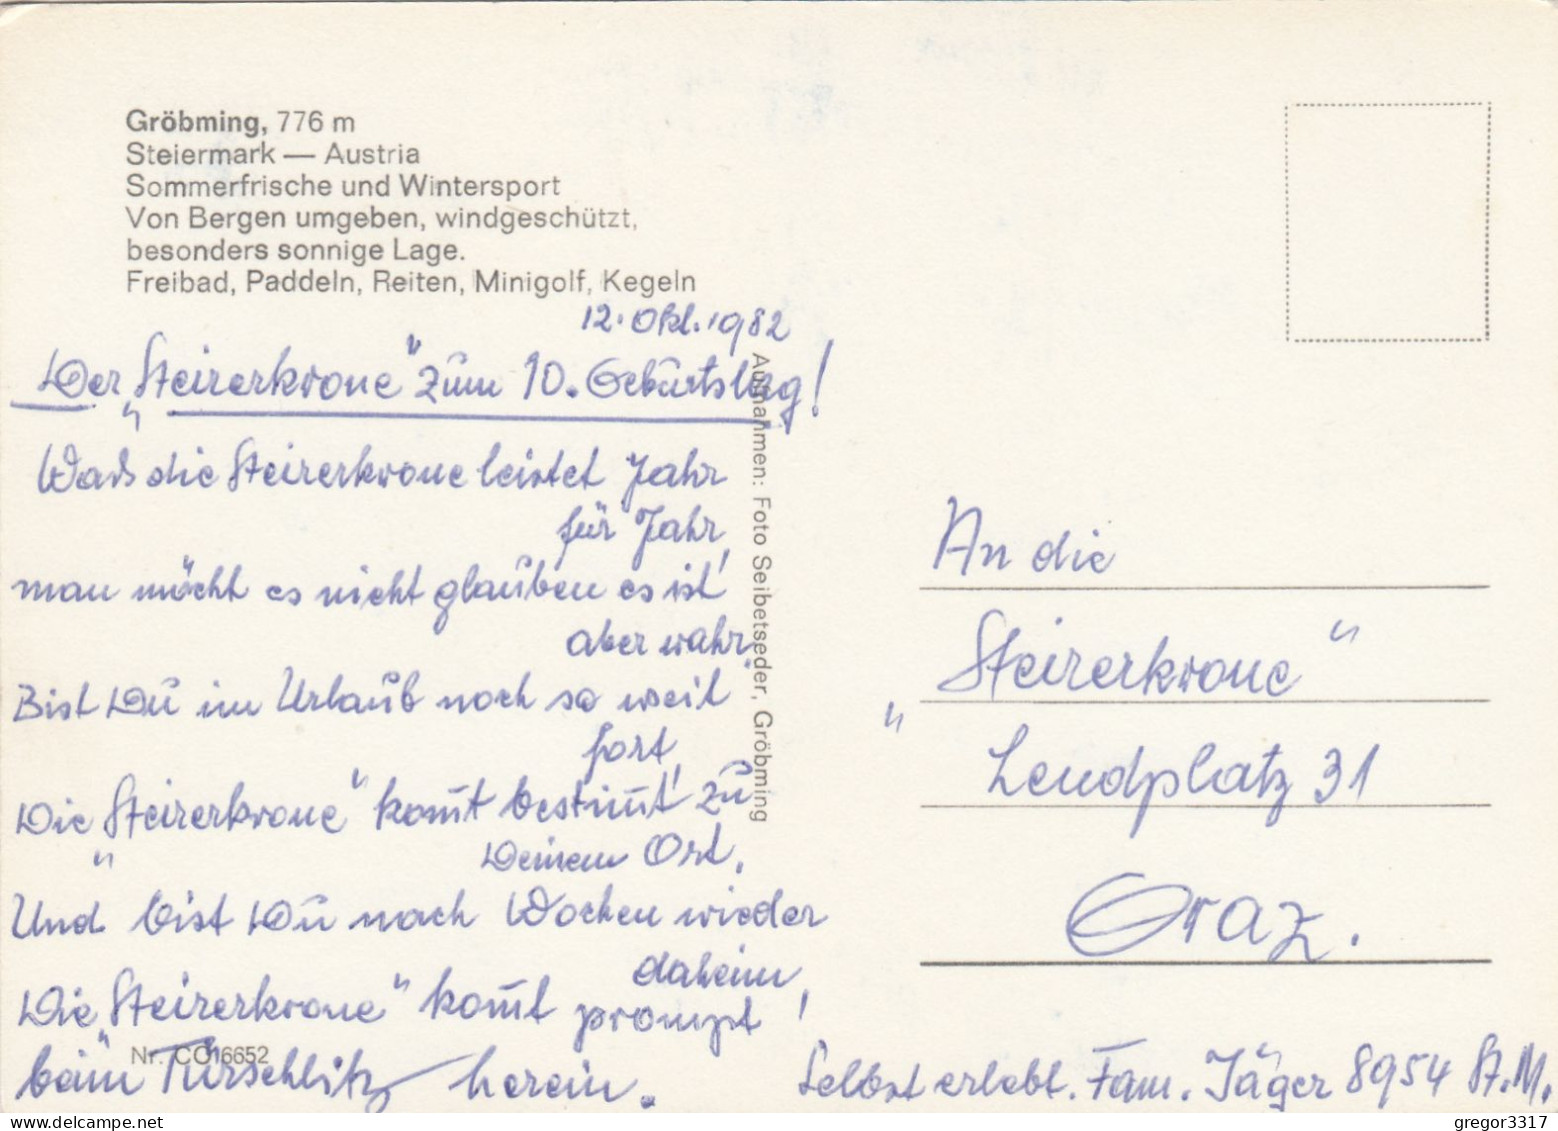 Gröbming, 776 m
Steiermark — Austria
Sommerfrische und Wintersport
Von Bergen umgeben, windgeschützt,
besonders sonnige Lage.
Freibad, Paddeln, Reiten, Minigolf, Kegeln
12. Okt. 1982
Der „Steirerkrone" zum 10. Geburtstag!
Was die Steirerkrone leistet Jahr
für Jahr,
man möcht es nicht glauben es ist
aber wahr.
Bist Du im Urlaub noch so weit
fort,
Die „Steirerkrone" kom̅t bestim̅t zu
Deinem Ort.
Und bist Du nach Wochen wieder
daheim,
Die „Steirerkrone" kom̅t prompt
beim Türschlitz herein.
Nr. CO 16652
Aufnahmen: Foto Seibetseder, Gröbming
An die
„Steirerkrone"
Lendplatz 31
Graz.
Selbst erlebt. Fam. Jäger 8954 St. M.
gregor3317
delcampe.net